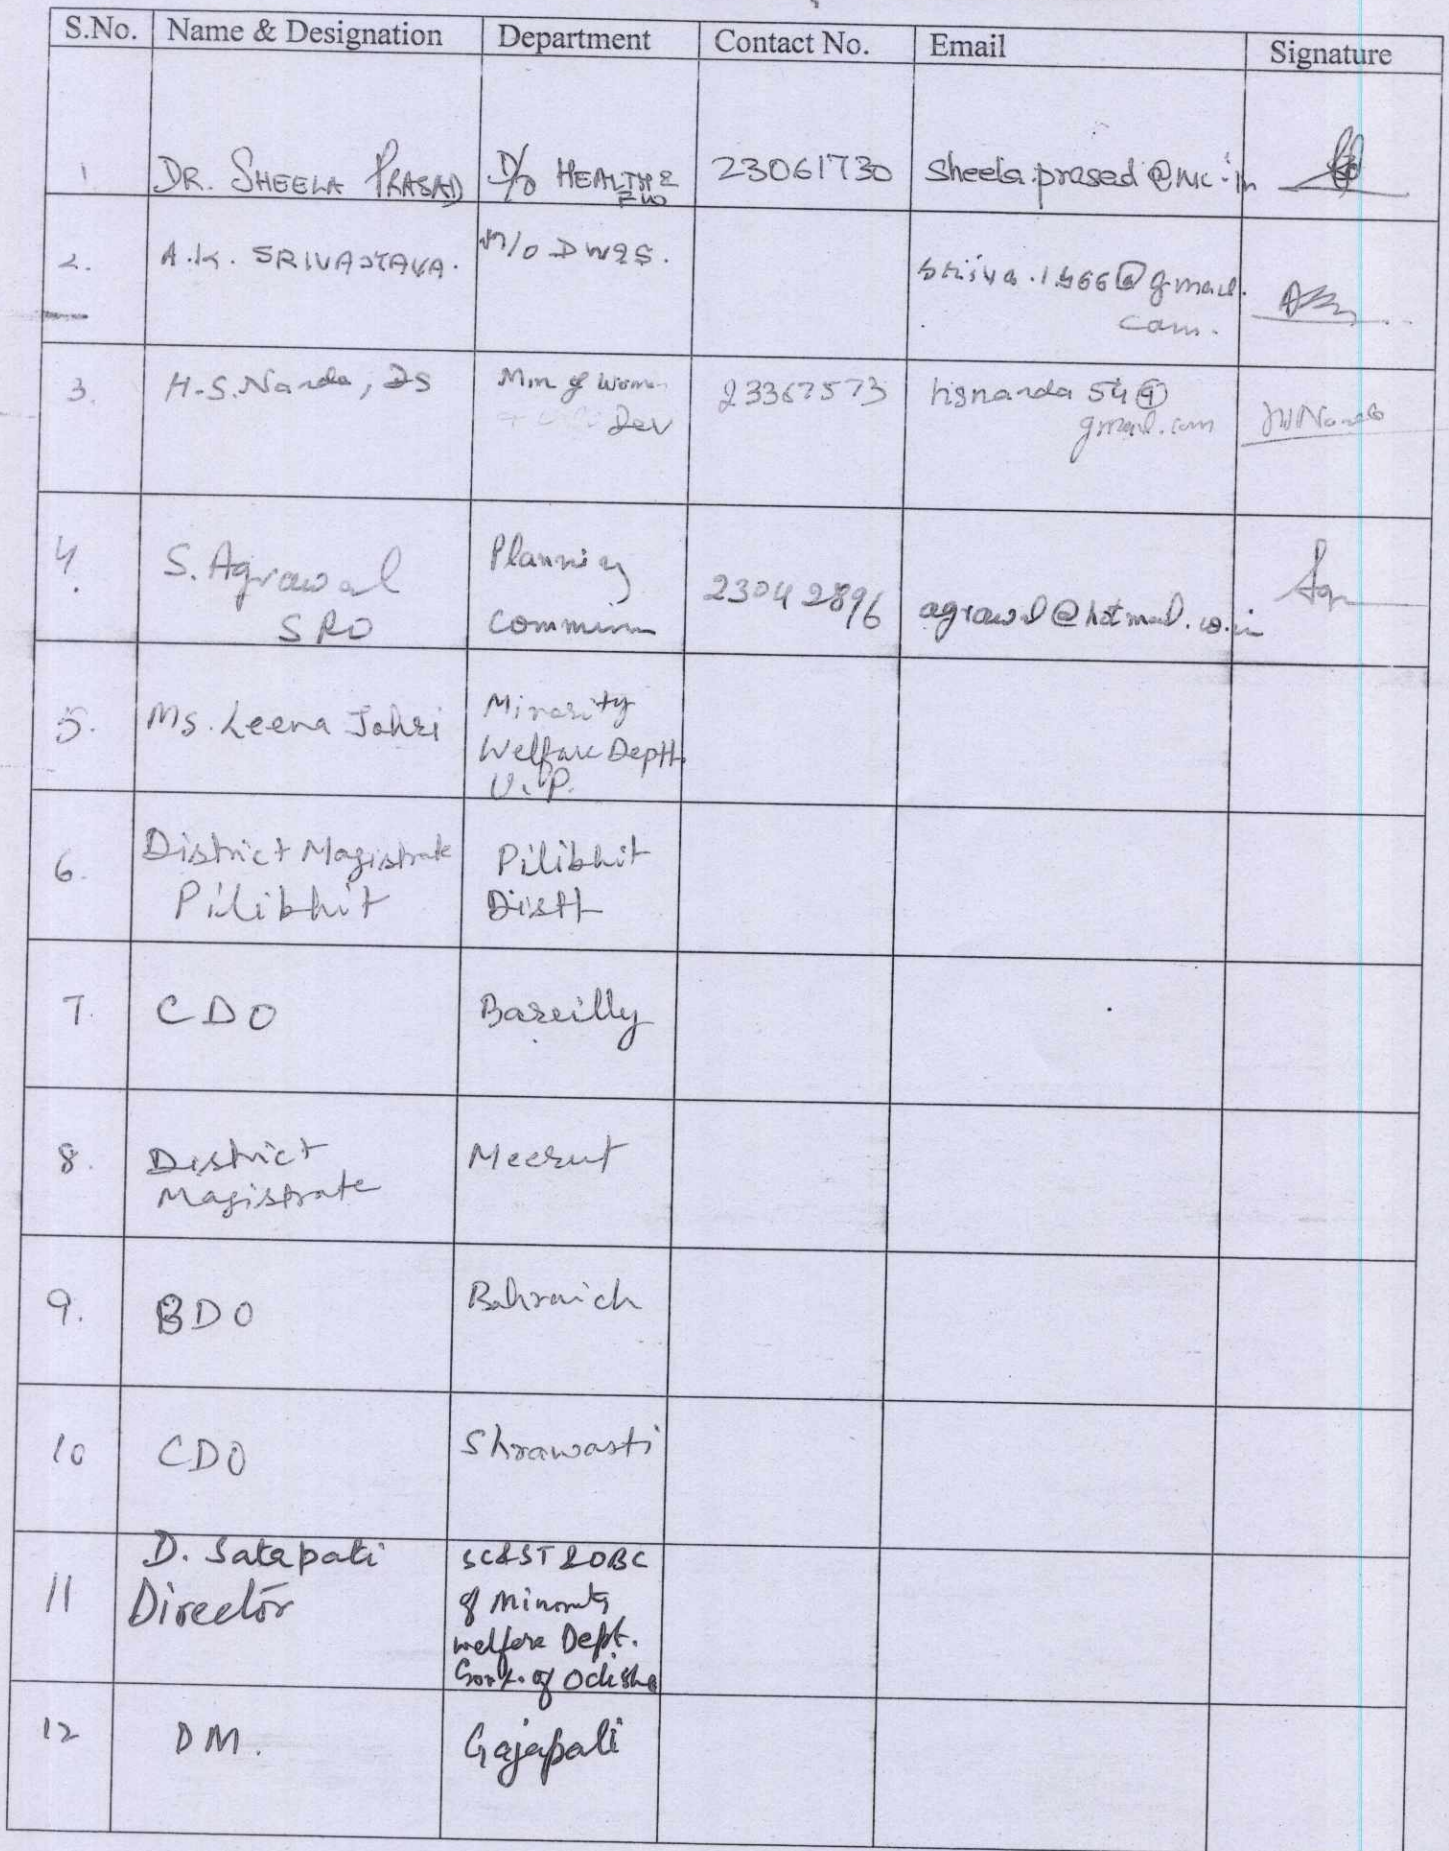 S.No. Name & Designation Department Contact No. Email Signature
1 DR. SHEELA PRASAD D/o HEALTH & 23061730 sheela.prasad@nic.in
FW
2. A.K. SRIVASTAVA. M/o DW&S.
sriva.1966@gmail.
com.
3. H.S. Nanda, DS Min of Women 23367573 hsnanda54@
Dev gmail.com
4. S. Agrawal Planning 23042896 agrawal@hotmail.co.in
SRO Commission
5. Ms. Leena Johri Minority
Welfare Deptt.
U.P.
6. District Magistrate Pilibhit
Pilibhit Distt
7. CDO Bareilly
8. District Meerut
Magistrate
9. BDO Bahraich
10 CDO Shrawasti
11 D. Satapati SC&ST & OBC
Director & Minority
welfare Dept.
Govt. of Odisha
12 DM. Gajapati